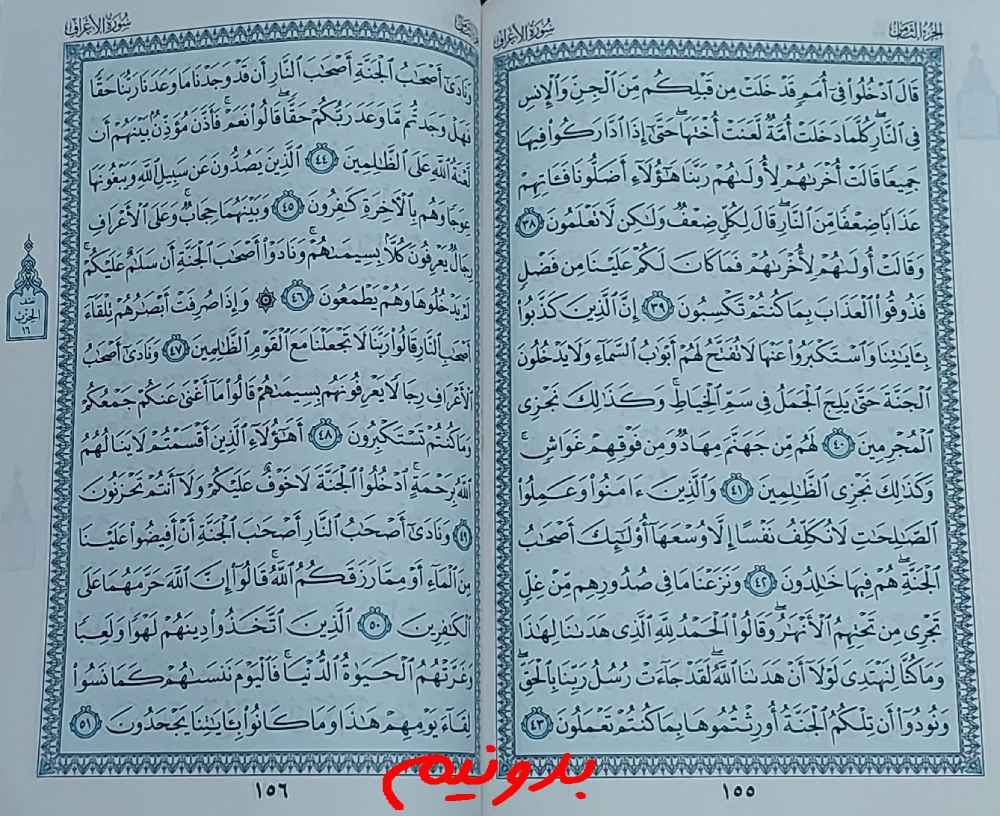 الجزء الثامن
سورة الأعراف
قَالَ ٱدْخُلُوا۟ فِىٓ أُمَمٍ قَدْ خَلَتْ مِن قَبْلِكُم مِّنَ ٱلْجِنِّ وَٱلْإِنسِ
فِى ٱلنَّارِ ۖ كُلَّمَا دَخَلَتْ أُمَّةٌ لَّعَنَتْ أُخْتَهَا ۖ حَتَّىٰٓ إِذَا ٱدَّارَكُوا۟ فِيهَا
جَمِيعًا قَالَتْ أُخْرَىٰهُمْ لِأُولَىٰهُمْ رَبَّنَا هَٰٓؤُلَآءِ أَضَلُّونَا فَـَٔاتِهِمْ
عَذَابًا ضِعْفًا مِّنَ ٱلنَّارِ ۖ قَالَ لِكُلٍّ ضِعْفٌ وَلَٰكِن لَّا تَعْلَمُونَ ٣٨
وَقَالَتْ أُولَىٰهُمْ لِأُخْرَىٰهُمْ فَمَا كَانَ لَكُمْ عَلَيْنَا مِن فَضْلٍ
فَذُوقُوا۟ ٱلْعَذَابَ بِمَا كُنتُمْ تَكْسِبُونَ ٣٩ إِنَّ ٱلَّذِينَ كَذَّبُوا۟
بِـَٔايَٰتِنَا وَٱسْتَكْبَرُوا۟ عَنْهَا لَا تُفَتَّحُ لَهُمْ أَبْوَٰبُ ٱلسَّمَآءِ وَلَا يَدْخُلُونَ
ٱلْجَنَّةَ حَتَّىٰ يَلِجَ ٱلْجَمَلُ فِى سَمِّ ٱلْخِيَاطِ ۚ وَكَذَٰلِكَ نَجْزِى
ٱلْمُجْرِمِينَ ٤٠ لَهُم مِّن جَهَنَّمَ مِهَادٌ وَمِن فَوْقِهِمْ غَوَاشٍ ۚ
وَكَذَٰلِكَ نَجْزِى ٱلظَّٰلِمِينَ ٤١ وَٱلَّذِينَ ءَامَنُوا۟ وَعَمِلُوا۟
ٱلصَّٰلِحَٰتِ لَا نُكَلِّفُ نَفْسًا إِلَّا وُسْعَهَآ أُو۟لَٰٓئِكَ أَصْحَٰبُ
ٱلْجَنَّةِ ۖ هُمْ فِيهَا خَٰلِدُونَ ٤٢ وَنَزَعْنَا مَا فِى صُدُورِهِم مِّنْ غِلٍّ
تَجْرِى مِن تَحْتِهِمُ ٱلْأَنْهَٰرُ ۖ وَقَالُوا۟ ٱلْحَمْدُ لِلَّهِ ٱلَّذِى هَدَىٰنَا لِهَٰذَا
وَمَا كُنَّا لِنَهْتَدِىَ لَوْلَآ أَنْ هَدَىٰنَا ٱللَّهُ ۖ لَقَدْ جَآءَتْ رُسُلُ رَبِّنَا بِٱلْحَقِّ ۖ
وَنُودُوٓا۟ أَن تِلْكُمُ ٱلْجَنَّةُ أُورِثْتُمُوهَا بِمَا كُنتُمْ تَعْمَلُونَ ٤٣
١٥٥
سورة الأعراف
وَنَادَىٰٓ أَصْحَٰبُ ٱلْجَنَّةِ أَصْحَٰبَ ٱلنَّارِ أَن قَدْ وَجَدْنَا مَا وَعَدَنَا رَبُّنَا حَقًّا
فَهَلْ وَجَدتُّم مَّا وَعَدَ رَبُّكُمْ حَقًّا ۖ قَالُوا۟ نَعَمْ ۚ فَأَذَّنَ مُؤَذِّنٌۢ بَيْنَهُمْ أَن
لَّعْنَةُ ٱللَّهِ عَلَى ٱلظَّٰلِمِينَ ٤٤ ٱلَّذِينَ يَصُدُّونَ عَن سَبِيلِ ٱللَّهِ وَيَبْغُونَهَا
عِوَجًا وَهُم بِٱلْـَٔاخِرَةِ كَٰفِرُونَ ٤٥ وَبَيْنَهُمَا حِجَابٌ ۚ وَعَلَى ٱلْأَعْرَافِ
رِجَالٌ يَعْرِفُونَ كُلًّۢا بِسِيمَىٰهُمْ ۚ وَنَادَوْا۟ أَصْحَٰبَ ٱلْجَنَّةِ أَن سَلَٰمٌ عَلَيْكُمْ ۚ
لَمْ يَدْخُلُوهَا وَهُمْ يَطْمَعُونَ ٤٦ ۞ وَإِذَا صُرِفَتْ أَبْصَٰرُهُمْ تِلْقَآءَ
أَصْحَٰبِ ٱلنَّارِ قَالُوا۟ رَبَّنَا لَا تَجْعَلْنَا مَعَ ٱلْقَوْمِ ٱلظَّٰلِمِينَ ٤٧ وَنَادَىٰٓ أَصْحَٰبُ
ٱلْأَعْرَافِ رِجَالًا يَعْرِفُونَهُم بِسِيمَىٰهُمْ قَالُوا۟ مَآ أَغْنَىٰ عَنكُمْ جَمْعُكُمْ
وَمَا كُنتُمْ تَسْتَكْبِرُونَ ٤٨ أَهَٰٓؤُلَآءِ ٱلَّذِينَ أَقْسَمْتُمْ لَا يَنَالُهُمُ
ٱللَّهُ بِرَحْمَةٍ ۚ ٱدْخُلُوا۟ ٱلْجَنَّةَ لَا خَوْفٌ عَلَيْكُمْ وَلَآ أَنتُمْ تَحْزَنُونَ
٤٩ وَنَادَىٰٓ أَصْحَٰبُ ٱلنَّارِ أَصْحَٰبَ ٱلْجَنَّةِ أَنْ أَفِيضُوا۟ عَلَيْنَا
مِنَ ٱلْمَآءِ أَوْ مِمَّا رَزَقَكُمُ ٱللَّهُ ۚ قَالُوٓا۟ إِنَّ ٱللَّهَ حَرَّمَهُمَا عَلَى
ٱلْكَٰفِرِينَ ٥٠ ٱلَّذِينَ ٱتَّخَذُوا۟ دِينَهُمْ لَهْوًا وَلَعِبًا
وَغَرَّتْهُمُ ٱلْحَيَوٰةُ ٱلدُّنْيَا ۚ فَٱلْيَوْمَ نَنسَىٰهُمْ كَمَا نَسُوا۟
لِقَآءَ يَوْمِهِمْ هَٰذَا وَمَا كَانُوا۟ بِـَٔايَٰتِنَا يَجْحَدُونَ ٥١
١٥٦
الحزب
١٦
بدونیم